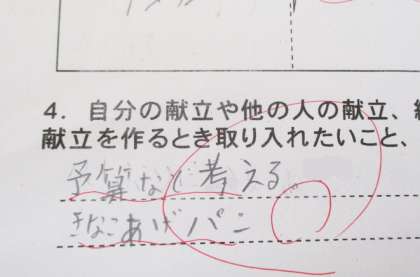 4. 自分の献立や他の人の献立、
献立を作るとき取り入れたいこと、
予算など考える。
きなこあげパン